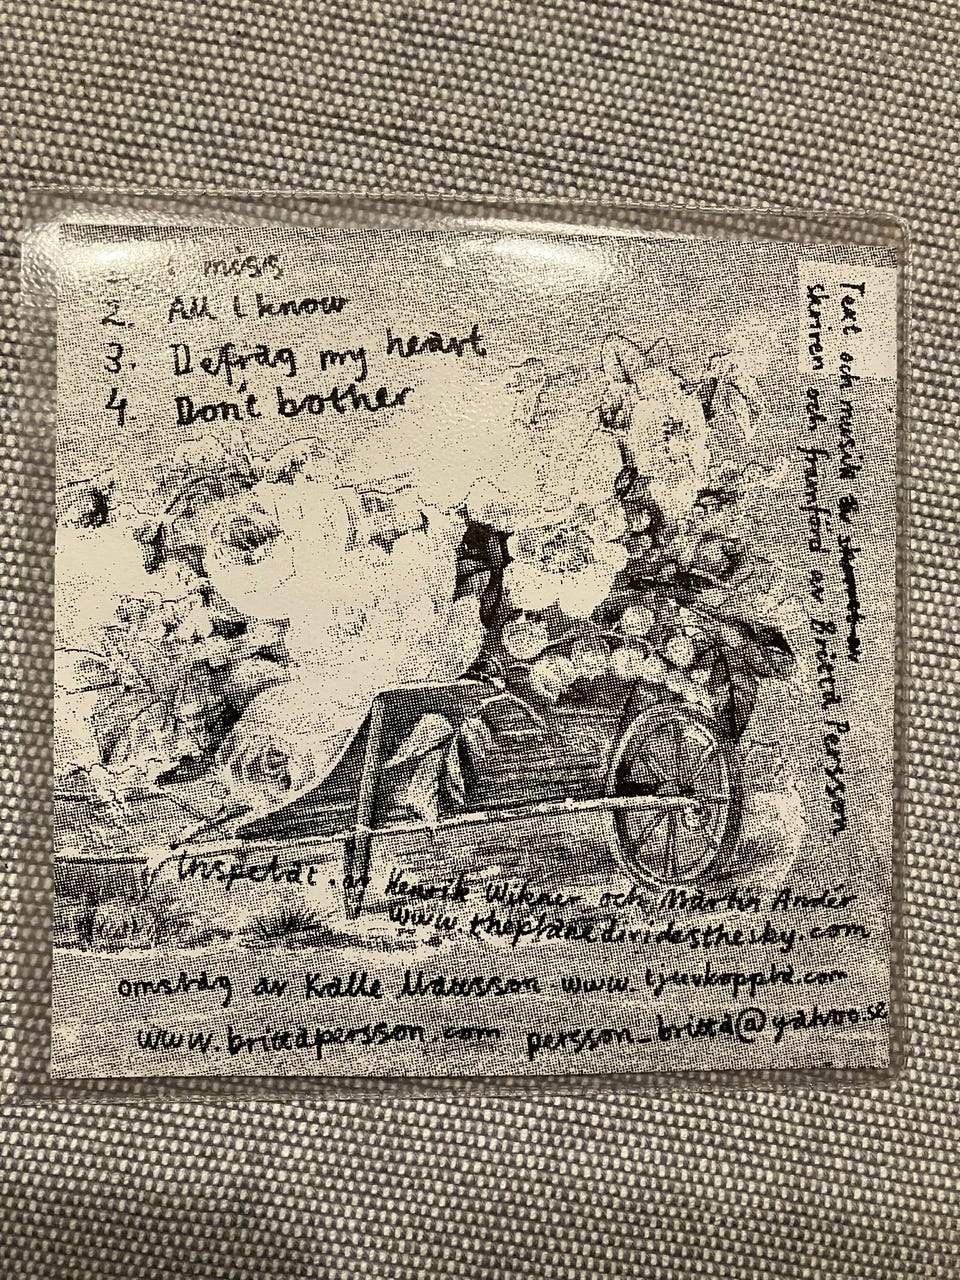 1. i miss
2. All i know
3. Defrag my heart
4. Don't bother
Text och musik är
skriven och framförd av Britta Persson
Inspelat av Henrik Wikner och Martin Andér
www.theplanedividesthesky.com
omslag av Kalle Mattsson www.tjuvkopplad.com
www.brittapersson.com persson_britta@yahoo.se